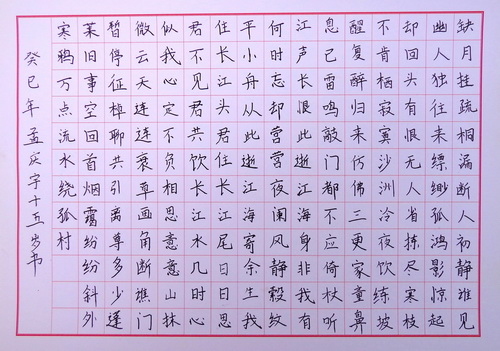 缺月挂疏桐漏断人初静谁见
幽人独往来缥缈孤鸿影惊起
却回头有恨无人省拣尽寒枝
不肯栖寂寞沙洲冷夜饮练坡
醒复醉归来仿佛三更家童鼻
息已雷鸣敲门都不应倚杖听
江声长恨此逝江海身非我有
何时忘却营营夜阑风静縠纹
平小舟从此逝江海寄余生我
住长江头君住长江尾日日思
君不见君共饮长江水几时心
似我心定不负相思意意山抹
微云天连连衰草画角断樵门
暂停征棹聊共引离尊多少蓬
莱旧事空回首烟霭纷纷斜外
寒鸦万点流水绕孤村
癸巳年孟庆宇十五岁书